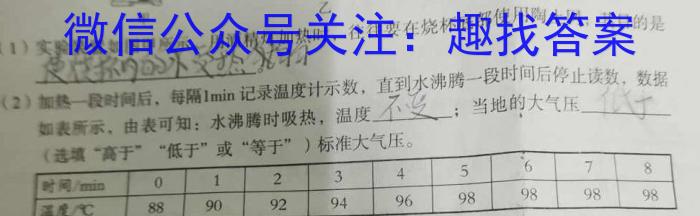 乙
微信公众号关注：趣找答案
(1)实
往往要在烧杯
的是
使烧杯内的水受热
(2)加热一段时间后，每隔1min记录温度计示数，直到水沸腾一段时间后停止读数，数据
如表所示，由表可知：水沸腾时吸热，温度 不变 ；当地的大气压 低于
(选填“高于”“低于”或“等于”)标准大气压。
时间/min 0 1 2 3 4 5 6 7 8
温度/℃ 88 90 92 94 96 98 98 98 98